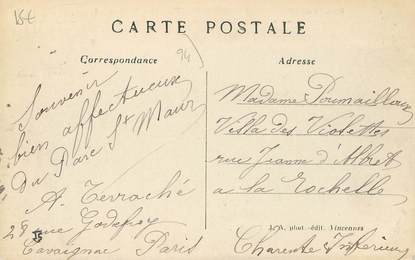 15€
CARTE POSTALE
Correspondance
94
Adresse
Souvenir
bien affectueux
du Parc St Maur
A. Terraché
28 rue Godefroy
Cavaignac Paris
Madame Poumailloux
Villa des Violettes
rue Jeanne d'Albret
a la Rochelle
Charente Inférieure
phot.-édit. Vincennes